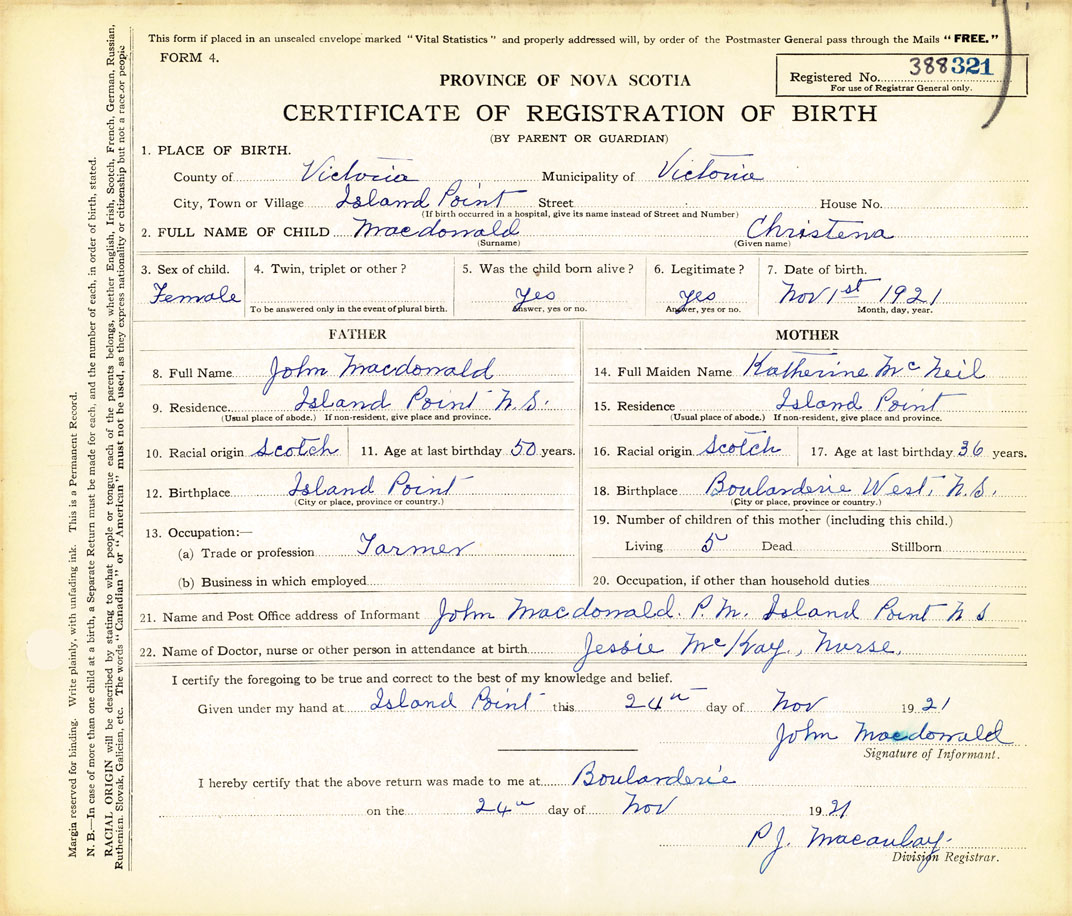 This form if placed in an unsealed envelope marked "Vital Statistics" and properly addressed will, by order of the Postmaster General pass through the Mails "FREE."
FORM 4.
Registered No. 388321
For use of Registrar General only.
PROVINCE OF NOVA SCOTIA
CERTIFICATE OF REGISTRATION OF BIRTH
(BY PARENT OR GUARDIAN)
1. PLACE OF BIRTH.
County of Victoria Municipality of Victoria
City, Town or Village Island Point Street House No.
(If birth occurred in a hospital, give its name instead of Street and Number)
2. FULL NAME OF CHILD Macdonald Christena
(Surname) (Given name)
3. Sex of child. 4. Twin, triplet or other? 5. Was the child born alive? 6. Legitimate? 7. Date of birth.
Female Yes Yes Nov 1st 1921
To be answered only in the event of plural birth. Answer, yes or no. Answer, yes or no. Month, day, year.
FATHER
8. Full Name John Macdonald
9. Residence Island Point N.S.
(Usual place of abode.) If non-resident, give place and province.
10. Racial origin Scotch 11. Age at last birthday 50 years.
12. Birthplace Island Point
(City or place, province or country.)
13. Occupation:—
(a) Trade or profession Farmer
(b) Business in which employed
MOTHER
14. Full Maiden Name Katherine McNeil
15. Residence Island Point
(Usual place of abode.) If non-resident, give place and province.
16. Racial origin Scotch 17. Age at last birthday 36 years.
18. Birthplace Boularderie West, N.S.
(City or place, province or country.)
19. Number of children of this mother (including this child.)
Living 5 Dead Stillborn
20. Occupation, if other than household duties
21. Name and Post Office address of Informant John Macdonald. P.M. Island Point N S
22. Name of Doctor, nurse or other person in attendance at birth Jessie McKay, Nurse.
I certify the foregoing to be true and correct to the best of my knowledge and belief.
Given under my hand at Island Point this 24th day of Nov 1921
John Macdonald
Signature of Informant.
I hereby certify that the above return was made to me at Boularderie
on the 24th day of Nov 1921
P.J. Macaulay.
Division Registrar.
Margin reserved for binding. Write plainly, with unfading ink. This is a Permanent Record.
N. B.—In case of more than one child at a birth, a Separate Return must be made for each, and the number of each, in order of birth, stated.
RACIAL ORIGIN will be described by stating to what people or tongue each of the parents belongs, whether English, Irish, Scotch, French, German, Russian,
Ruthenian, Slovak, Galician, etc. The words "Canadian" or "American" must not be used, as they express nationality or citizenship but not a race or people